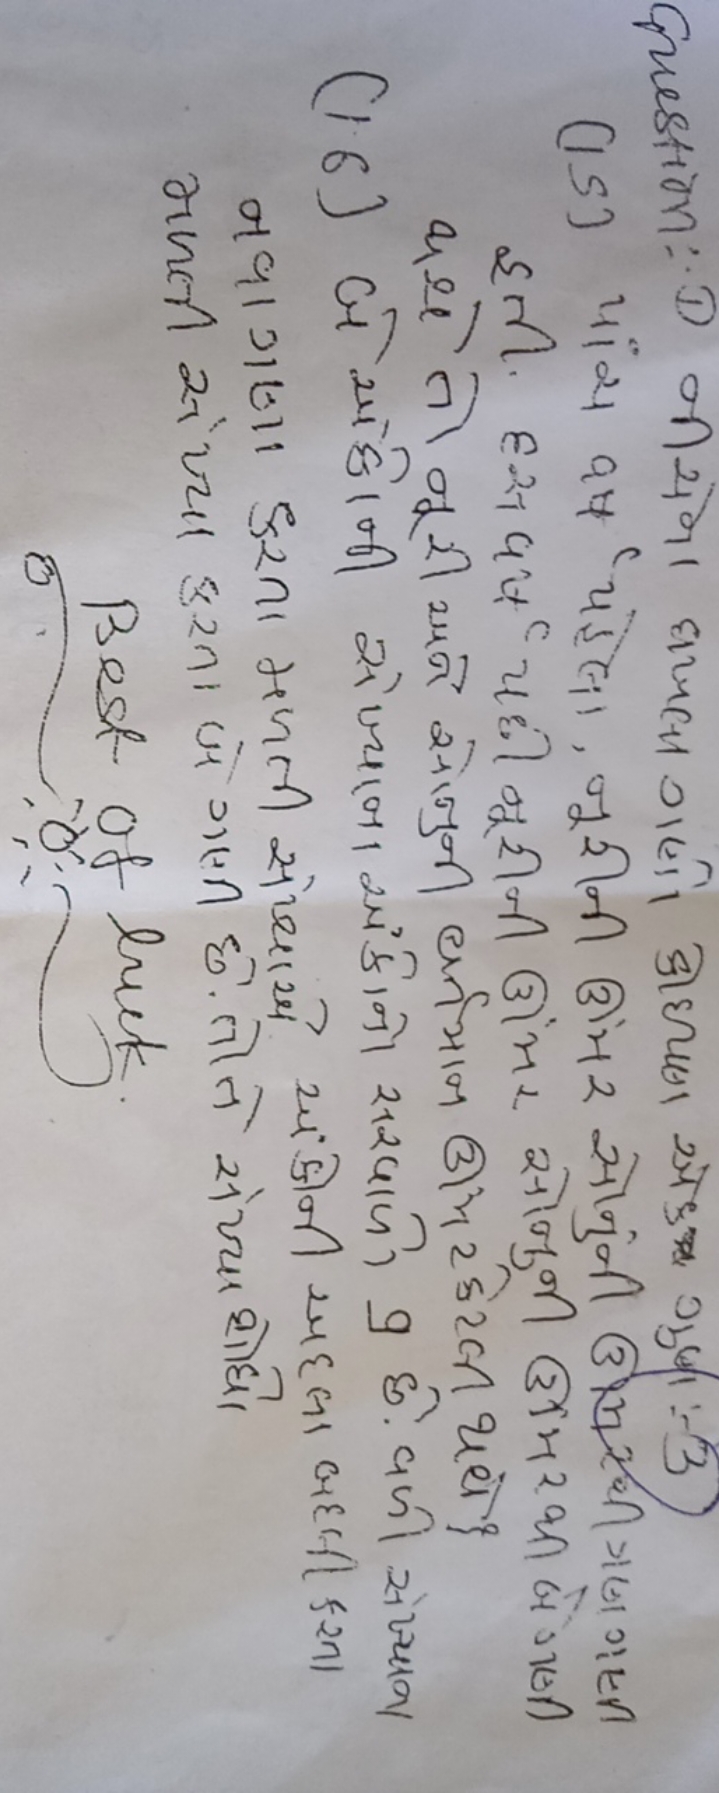 Question:-① નીચેના દાખલા ગણો કોઇપણ એક ગુણ :-3
(15) પાંચ વર્ષ પહેલા, નુરીની ઉંમર સોનુની ઉંમરથી ત્રણ ગણી
હતી. દસ વર્ષ પછી નુરીની ઉંમર સોનુની ઉંમરથી બે ગણી
થશે તો નુરી અને સોનુની વર્તમાન ઉંમર કેટલી થશે?
(16) બે અંકોની સંખ્યાના અંકોનો સરવાળો 9 છે. વળી સંખ્યાના
નવ ગણા કરતા મળતી સંખ્યાએ અંકોની અદલા બદલી કરતા
મળતી સંખ્યા કરતા બે ગણી છે. તો તે સંખ્યા શોધો
Best of luck.